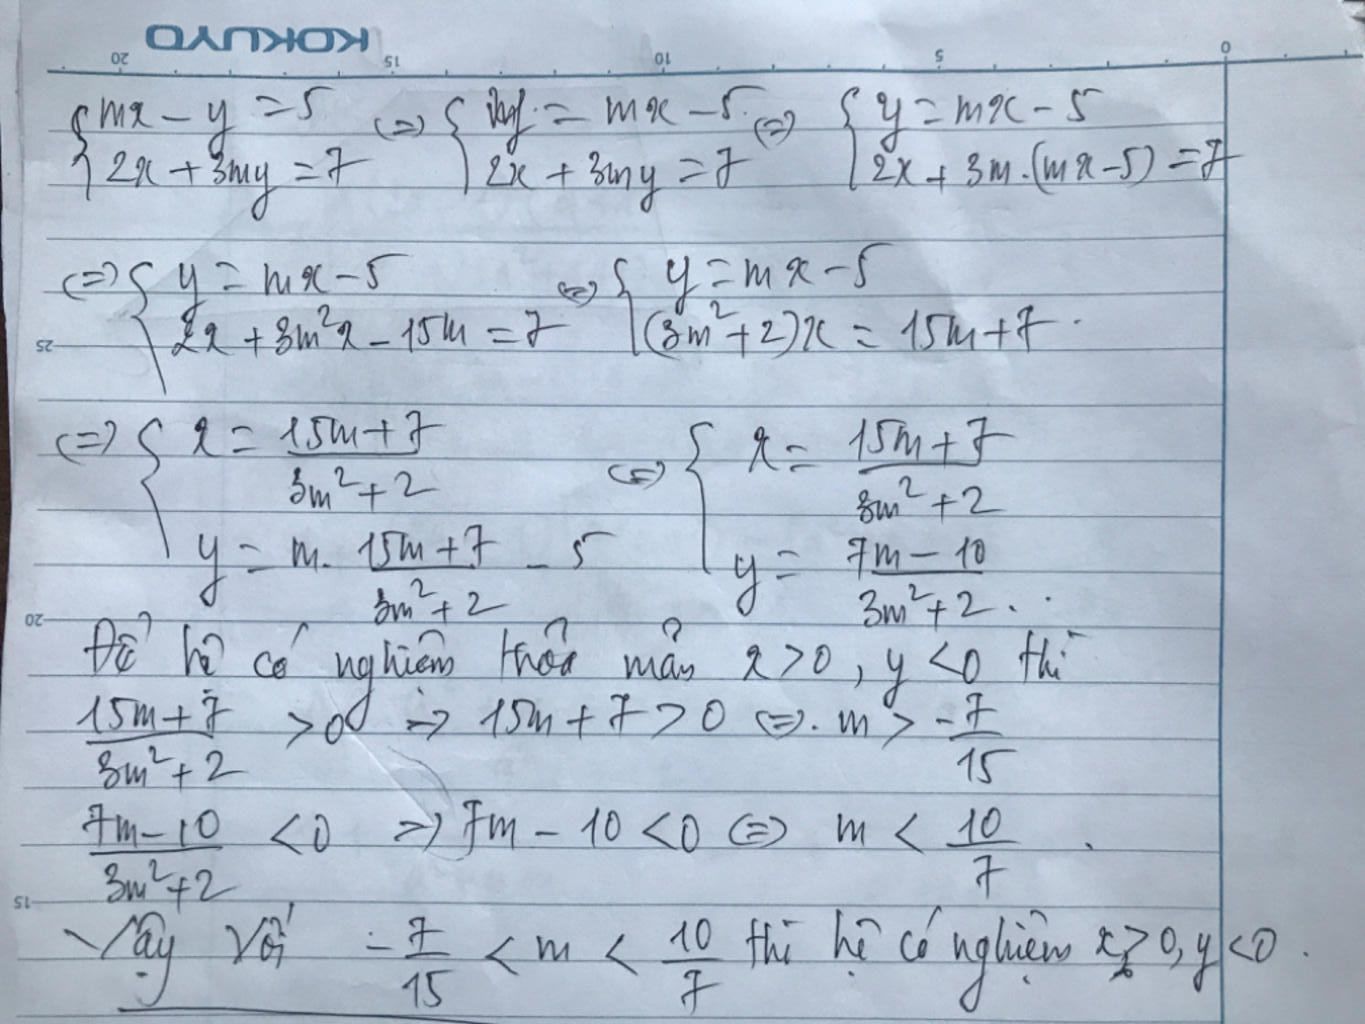 KOKUYO
20 15 10 5 0
{ mx - y = 5 (=) { y = mx - 5 (=) { y = mx - 5
2x + 3my = 7 2x + 3my = 7 2x + 3m.(mx-5) = 7
(=) { y = mx - 5 (=) { y = mx - 5
25
2x + 3m²x - 15m = 7 (3m²+2)x = 15m+7.
(=) { x = \frac{15m+7}{3m²+2} (=) { x = \frac{15m+7}{3m²+2}
y = m. \frac{15m+7}{3m²+2} - 5 y = \frac{7m-10}{3m²+2}.
20
Để hệ có nghiệm thỏa mãn x>0, y<0 thì
\frac{15m+7}{3m²+2} >0 => 15m+7 >0 (=). m > -\frac{7}{15}
\frac{7m-10}{3m²+2} <0 => 7m - 10 <0 (=) m < \frac{10}{7}.
15
Vậy với -\frac{7}{15} < m < \frac{10}{7} thì hệ có nghiệm x>0, y<0.